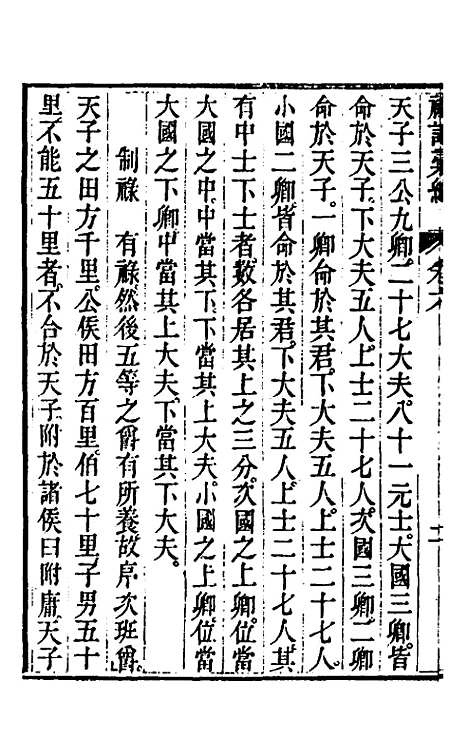 天子三公九卿二十七大夫八十一元士大國三卿皆
命於天子下大夫五人上士二十七人次國三卿二卿
命於天子一卿命於其君下大夫五人上士二十七人
小國二卿皆命於其君下大夫五人上士二十七人其
有中士下士者數各居其上之三分次國之上卿位當
大國之中中當其下下當其上大夫小國之上卿位當
大國之下卿中當其上大夫下當其下大夫
制祿　有祿然後五等之爵有所養故序次班爵
天子之田方千里公侯田方百里伯七十里子男五十
里不能五十里者不合於天子附於諸侯曰附庸天子